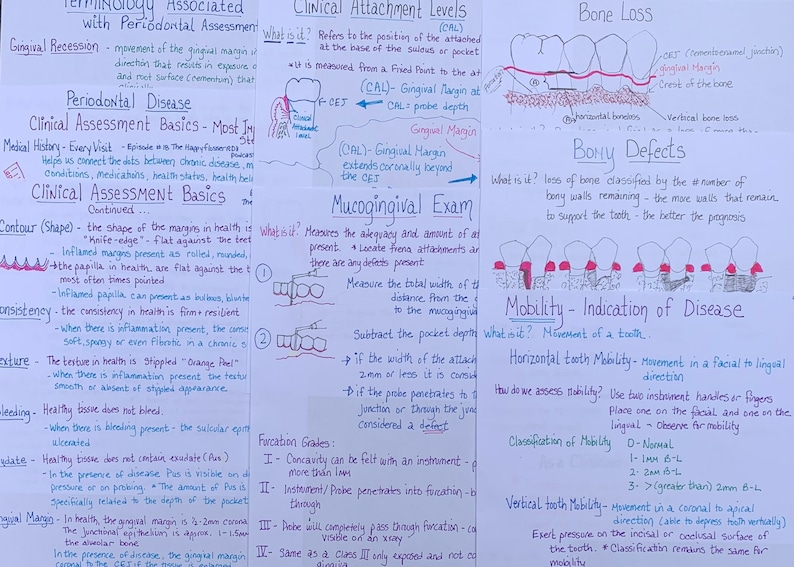 Terminology Associated
with Periodontal Assessment
Gingival Recession - movement of the gingival margin in
direction that results in exposure o
and root surface (cementum) that
Periodontal Disease
Clinical Assessment Basics - Most Im
Medical History - Every Visit - Episode #18 The Happy Flosser RDH
podcast
Helps us connect the dots between chronic disease, m
conditions, medications, health status, health beli
Clinical Assessment Basics
Continued ...
Contour (Shape) - the shape of the margins in health is
"Knife-edge" - flat against the teet
- Inflamed margins present as rolled, rounded,
→ the papilla in health are flat against the t
most often times pointed
- Inflamed papilla can present as bulbous, blunte
onsistency - the consistency in health is firm + resilient
- when there is inflammation present, the consis
soft, spongy or even fibrotic in a chronic s
exture - The texture in health is stippled "Orange Peel"
- When there is inflammation present the textu
smooth or absent of stippled appearance.
leeding - Healthy tissue does not bleed.
- When there is bleeding present - the sulcular epith
ulcerated
xudate - Healthy tissue does not contain exudate (Pus)
- In the presence of disease Pus is visible on di
pressure or on probing. * The amount of Pus is
specifically related to the depth of the pocket
ngival Margin - In health, the gingival margin is ½-2mm coronal
The junctional epithelium is approx. 1-1.5mm
the alveolar bone
In the presence of disease, the gingival margin
coronal to the CEJ if the tissue is enlarged
Clinical Attachment Levels
(CAL)
What is it? Refers to the position of the attached
at the base of the sulcus or pocket
* It is measured from a Fixed Point to the at
(CAL) - Gingival Margin at
← CEJ
CAL = probe depth
Clinical
Attachment
Level
Gingival Margin
(CAL) - Gingival Margin
extends coronally beyond
the CEJ
Mucogingival Exam
What is it? Measures the adequacy and amount of at
present. * Locate frena attachments an
there are any defects present
1
Measure the total width of th
distance from the g
to the mucogingival
2
Subtract the pocket depth
→ if the width of the attach
2mm or less it is consid
→ if the probe penetrates to t
junction or through the junc
considered a defect
Furcation Grades:
I - Concavity can be felt with an instrument - p
more than 1mm
II - Instrument/Probe penetrates into furcation - b
through
III - Probe will completely pass through furcation - co
visible on an xray
IV - Same as a Class III only exposed and not co
gingiva
Bone Loss
CEJ (cementoenamel junction)
gingival Margin
Crest of the bone
A
B
horizontal boneloss
Vertical bone loss
Bony Defects
What is it? loss of bone classified by the # number of
bony walls remaining - the more walls that remain
to support the tooth - the better the prognosis
Mobility - Indication of Disease
What is it? Movement of a tooth.
Horizontal tooth Mobility - Movement in a facial to lingual
direction
How do we assess mobility? Use two instrument handles or fingers
Place one on the facial and one on the
lingual → Observe for mobility
Classification of Mobility 0 - Normal
1 - 1mm B-L
2 - 2mm B-L
3 - > (greater than) 2mm B-L
Vertical tooth Mobility - Movement in a coronal to apical
direction (able to depress tooth vertically)
Exert pressure on the incisal or occlusal surface of
the tooth. * Classification remains the same for
mobility